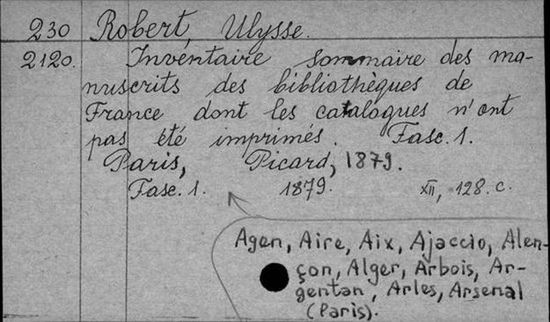 230 Robert, Ulysse.
2120. Inventaire sommaire des ma-
nuscrits des bibliothèques de
France dont les catalogues n'ont
pas été imprimés. Fasc. 1.
Paris, Picard, 1879.
Fasc. 1. 1879. XII, 128. c.
Agen, Aire, Aix, Ajaccio, Alen-
çon, Alger, Arbois, Ar-
gentan, Arles, Arsenal
(Paris).